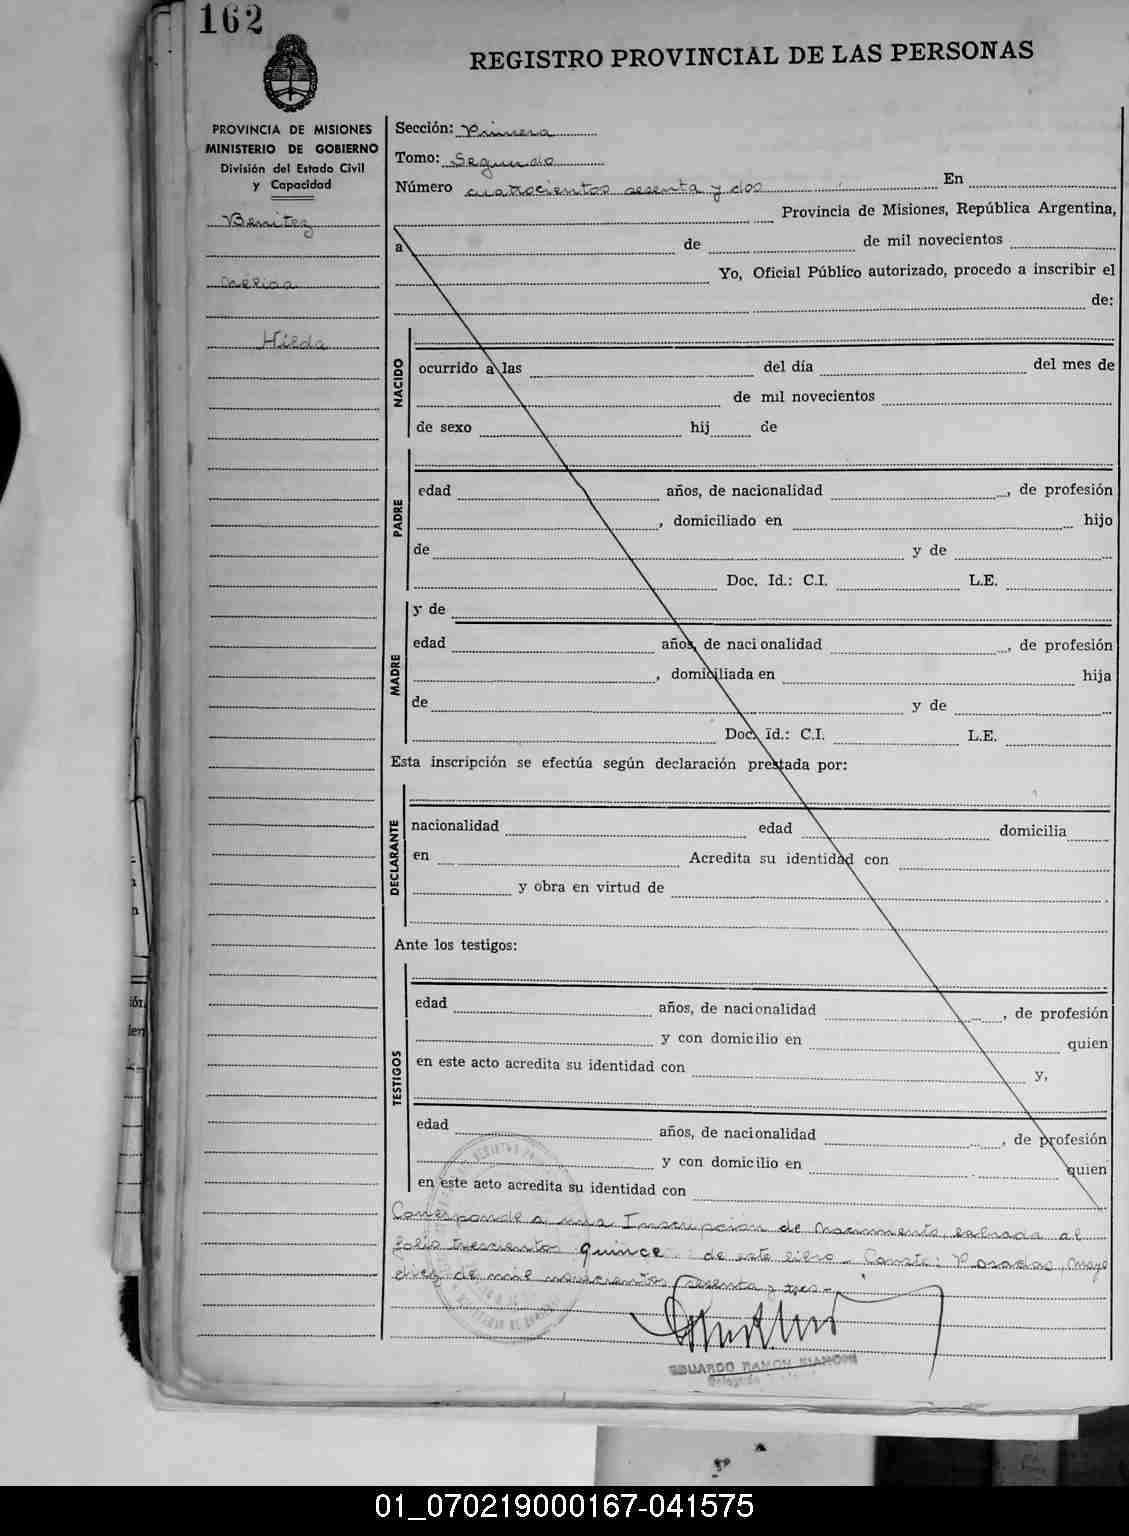 162
REGISTRO PROVINCIAL DE LAS PERSONAS
PROVINCIA DE MISIONES
MINISTERIO DE GOBIERNO
División del Estado Civil
y Capacidad
Benitez
Nélida
Hilda
Sección: Primera
Tomo: Segundo
Número cuatrocientos sesenta y dos En
Provincia de Misiones, República Argentina,
a de de mil novecientos
Yo, Oficial Público autorizado, procedo a inscribir el
de:
NACIDO
ocurrido a las del día del mes de
de mil novecientos
de sexo hij de
PADRE
edad años, de nacionalidad , de profesión
, domiciliado en hijo
de y de
Doc. Id.: C.I. L.E.
MADRE
y de
edad años, de nacionalidad , de profesión
, domiciliada en hija
de y de
Doc. Id.: C.I. L.E.
Esta inscripción se efectúa según declaración prestada por:
DECLARANTE
nacionalidad edad domicilia
en Acredita su identidad con
y obra en virtud de
Ante los testigos:
TESTIGOS
edad años, de nacionalidad , de profesión
y con domicilio en quien
en este acto acredita su identidad con y,
edad años, de nacionalidad , de profesión
y con domicilio en quien
en este acto acredita su identidad con
Corresponde a una Inscripción de Nacimiento, labrada al
folio trescientos quince de este libro. Conste: Posadas, Mayo
diez de mil novecientos sesenta y tres.-
EDUARDO RAMON BIANCHI
Delegado
01_070219000167-041575